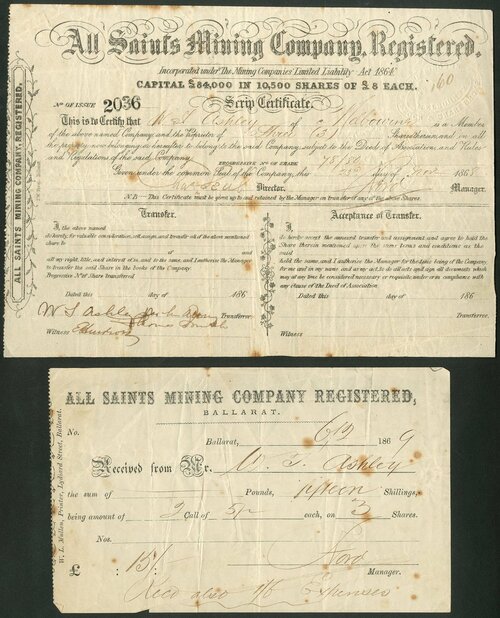 All Saints Mining Company, Registered.
Incorporated under The Mining Companies' Limited Liability Act 1864.
CAPITAL £84,000 IN 10,500 SHARES OF £8 EACH.
160
ALL SAINTS MINING COMPANY, REGISTERED.
No. OF ISSUE 2036 Scrip Certificate.
This is to Certify that W. S. Ashley of is a Member
of the above named Company, and the Proprietor of Three (3) Shares therein and on all
the property now belonging or hereafter to belong to the said Company, subject to the Deed of Association, and Rules
and Regulations of the said Company.
PROGRESSIVE Nos. OF SHARES 78/80
Given under the common Seal of the Company, this day of 1868
Director. Manager.
N.B.—This Certificate must be given up to and retained by the Manager on transfer of any of the above Shares.
Transfer.
I, the above named
do hereby, for valuable consideration, sell, assign, and transfer all of the above mentioned
share to
of and
all my right, title, and interest of, in, and to the same, and I authorise the Manager
to transfer the said Share in the books of the Company
Progressive Nos. of Share Transferred
Dated this day of 186
W. S. Ashley Transferror.
Witness
Acceptance of Transfer.
I,
do hereby accept the annexed transfer and assignment, and agree to hold the
Share therein mentioned upon the same terms and conditions as the
said
held the same, and I authorise the Manager for the time being of the Company
for me and in my name and as my act to do all acts and sign all documents which
may at any time be considered necessary or requisite under or in compliance with
any clause of the Deed of Association.
Dated this day of 186
Transferree.
Witness
ALL SAINTS MINING COMPANY REGISTERED,
BALLARAT.
No.
Ballarat, 1869
Received from Mr. W. S. Ashley
the sum of Pounds, fifteen Shillings,
being amount of 2 Call of 5/- each, on 3 Shares.
Nos.
£ : 15/- Manager.
Recd also 1/6 Expenses
W. L. Mullen, Printer, Lydiard Street, Ballarat.